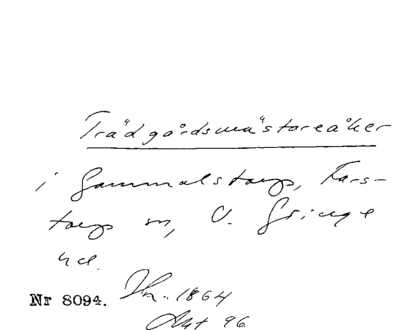 Trädgårdsmästareåker
i Gammalstorp, Fars-
torp sn, V. Göinge
hd.
Nr 8094. Dnr. 1864
Akt 96